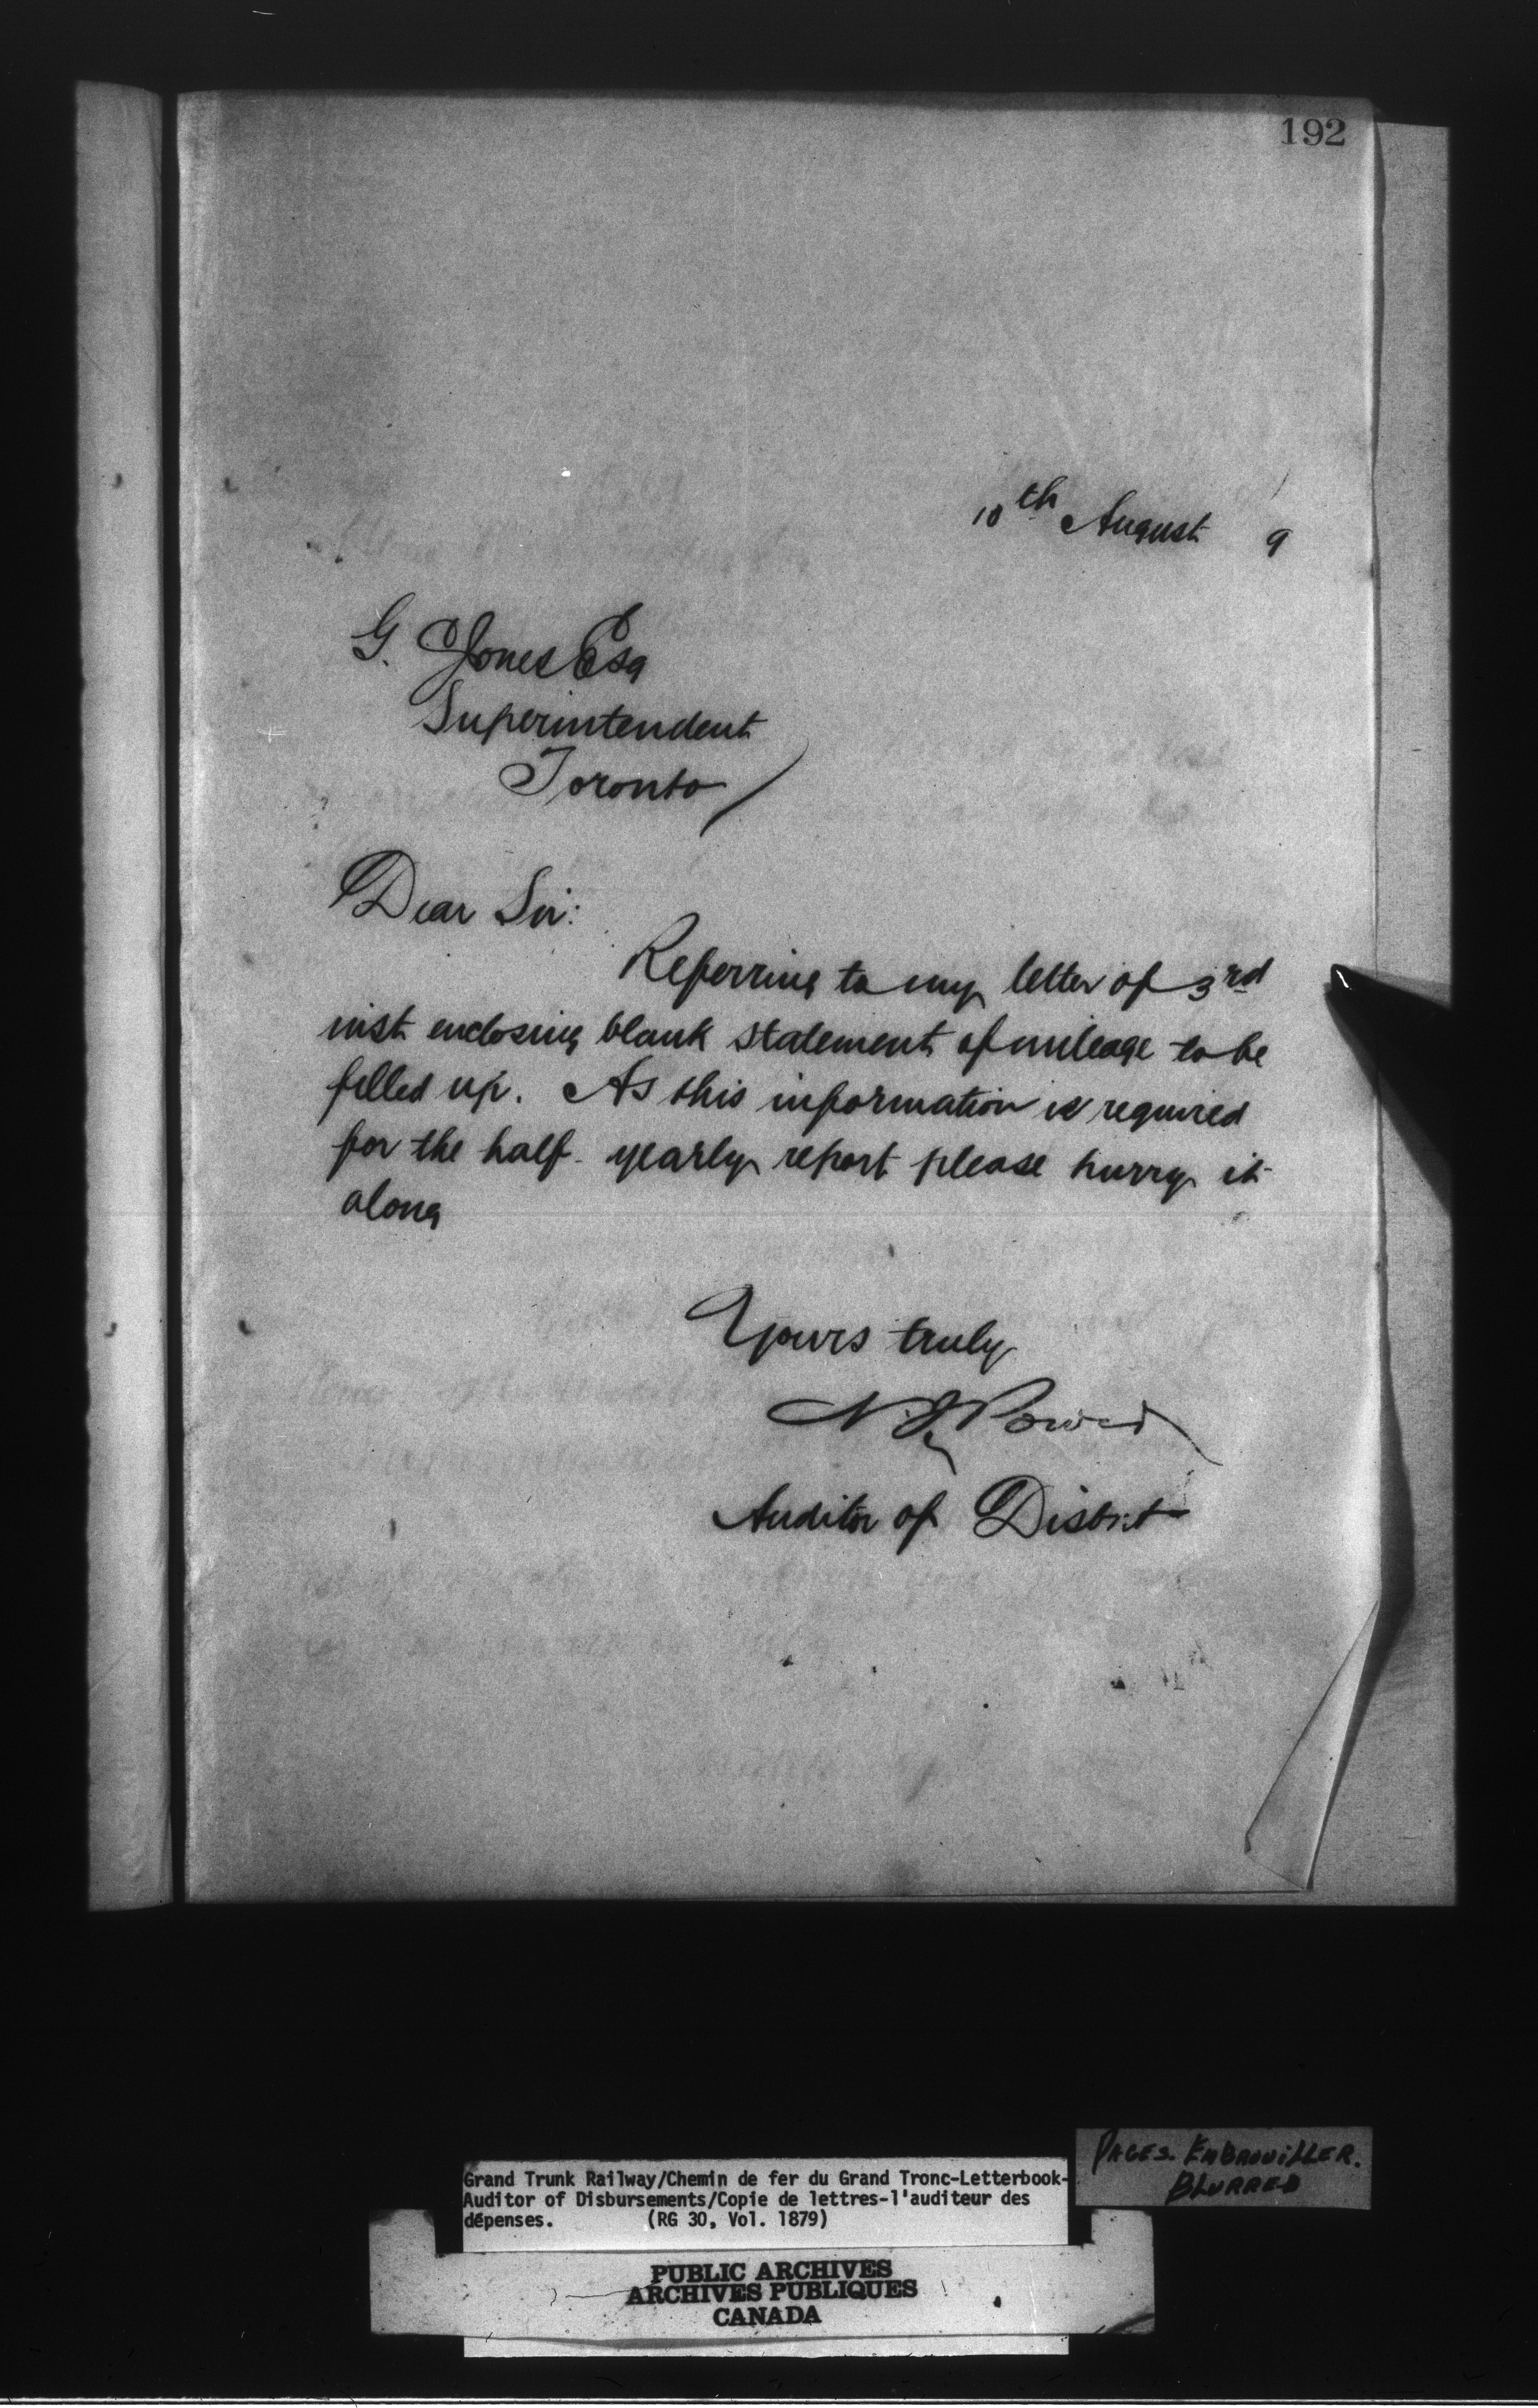 192
10th August 9
G. Jones Esq
Superintendent
Toronto
Dear Sir:
Referring to my letter of 3rd
inst enclosing blank statement of mileage to be
filled up. As this information is required
for the half-yearly report please hurry it
along
Yours truly
N J Power
Auditor of Disbt
Grand Trunk Railway/Chemin de fer du Grand Tronc-Letterbook-
Auditor of Disbursements/Copie de lettres-l'auditeur des
dépenses. (RG 30, Vol. 1879)
PAGES. EMBROUILLER.
BLURRED
PUBLIC ARCHIVES
ARCHIVES PUBLIQUES
CANADA